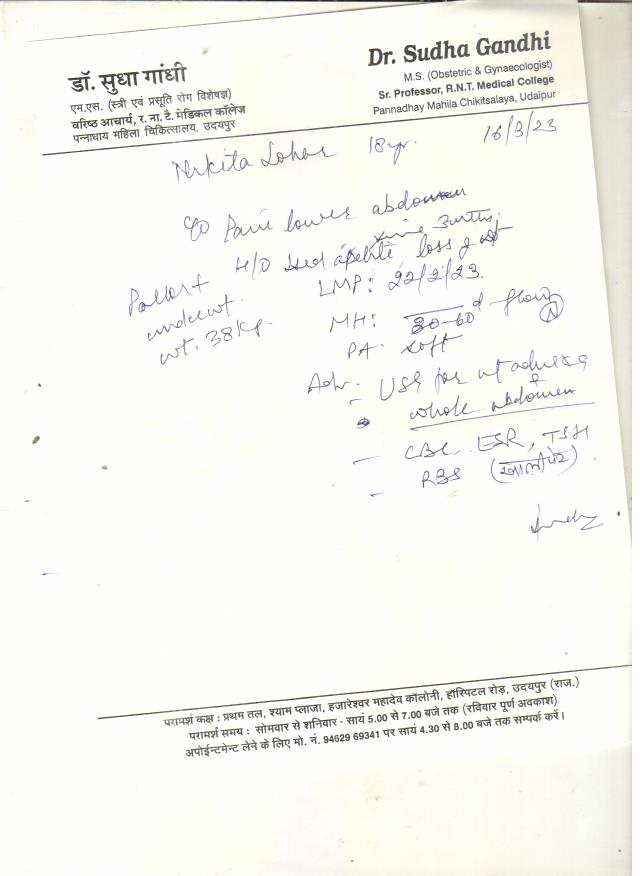 डॉ. सुधा गांधी
एम.एस. (स्त्री एवं प्रसूति रोग विशेषज्ञ)
वरिष्ठ आचार्य, र. ना. टै. मेडिकल कॉलेज
पन्नाधाय महिला चिकित्सालय, उदयपुर
Dr. Sudha Gandhi
M.S. (Obstetric & Gynaecologist)
Sr. Professor, R.N.T. Medical College
Pannadhay Mahila Chikitsalaya, Udaipur
Lohar 18 yr. 16/3/23
c/o Pain lower abdomen
since 3 mths.
H/O apetite, loss of wt
Pallor +
underwt.
wt. 38 kg.
LMP: 22/2/23
MH: 30-60 d flow (N)
PA: soft
Adv. - USG for ut adnexa
&
whole abdomen
- CBC, ESR, TSH
- RBS (खाली पेट)
परामर्श कक्ष : प्रथम तल, श्याम प्लाजा, हजारेश्वर महादेव कॉलोनी, हॉस्पिटल रोड़, उदयपुर (राज.)
परामर्श समय : सोमवार से शनिवार - सायं 5.00 से 7.00 बजे तक (रविवार पूर्ण अवकाश)
अपोईन्टमेन्ट लेने के लिए मो. नं. 94629 69341 पर सायं 4.30 से 8.00 बजे तक सम्पर्क करें।